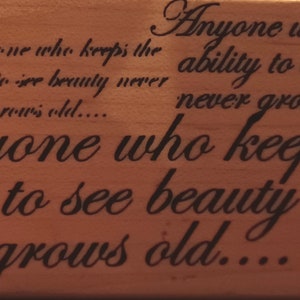 one who keeps the
to see beauty never
grows old....
Anyone w
ability to
never grow
yone who keep
to see beauty
grows old....